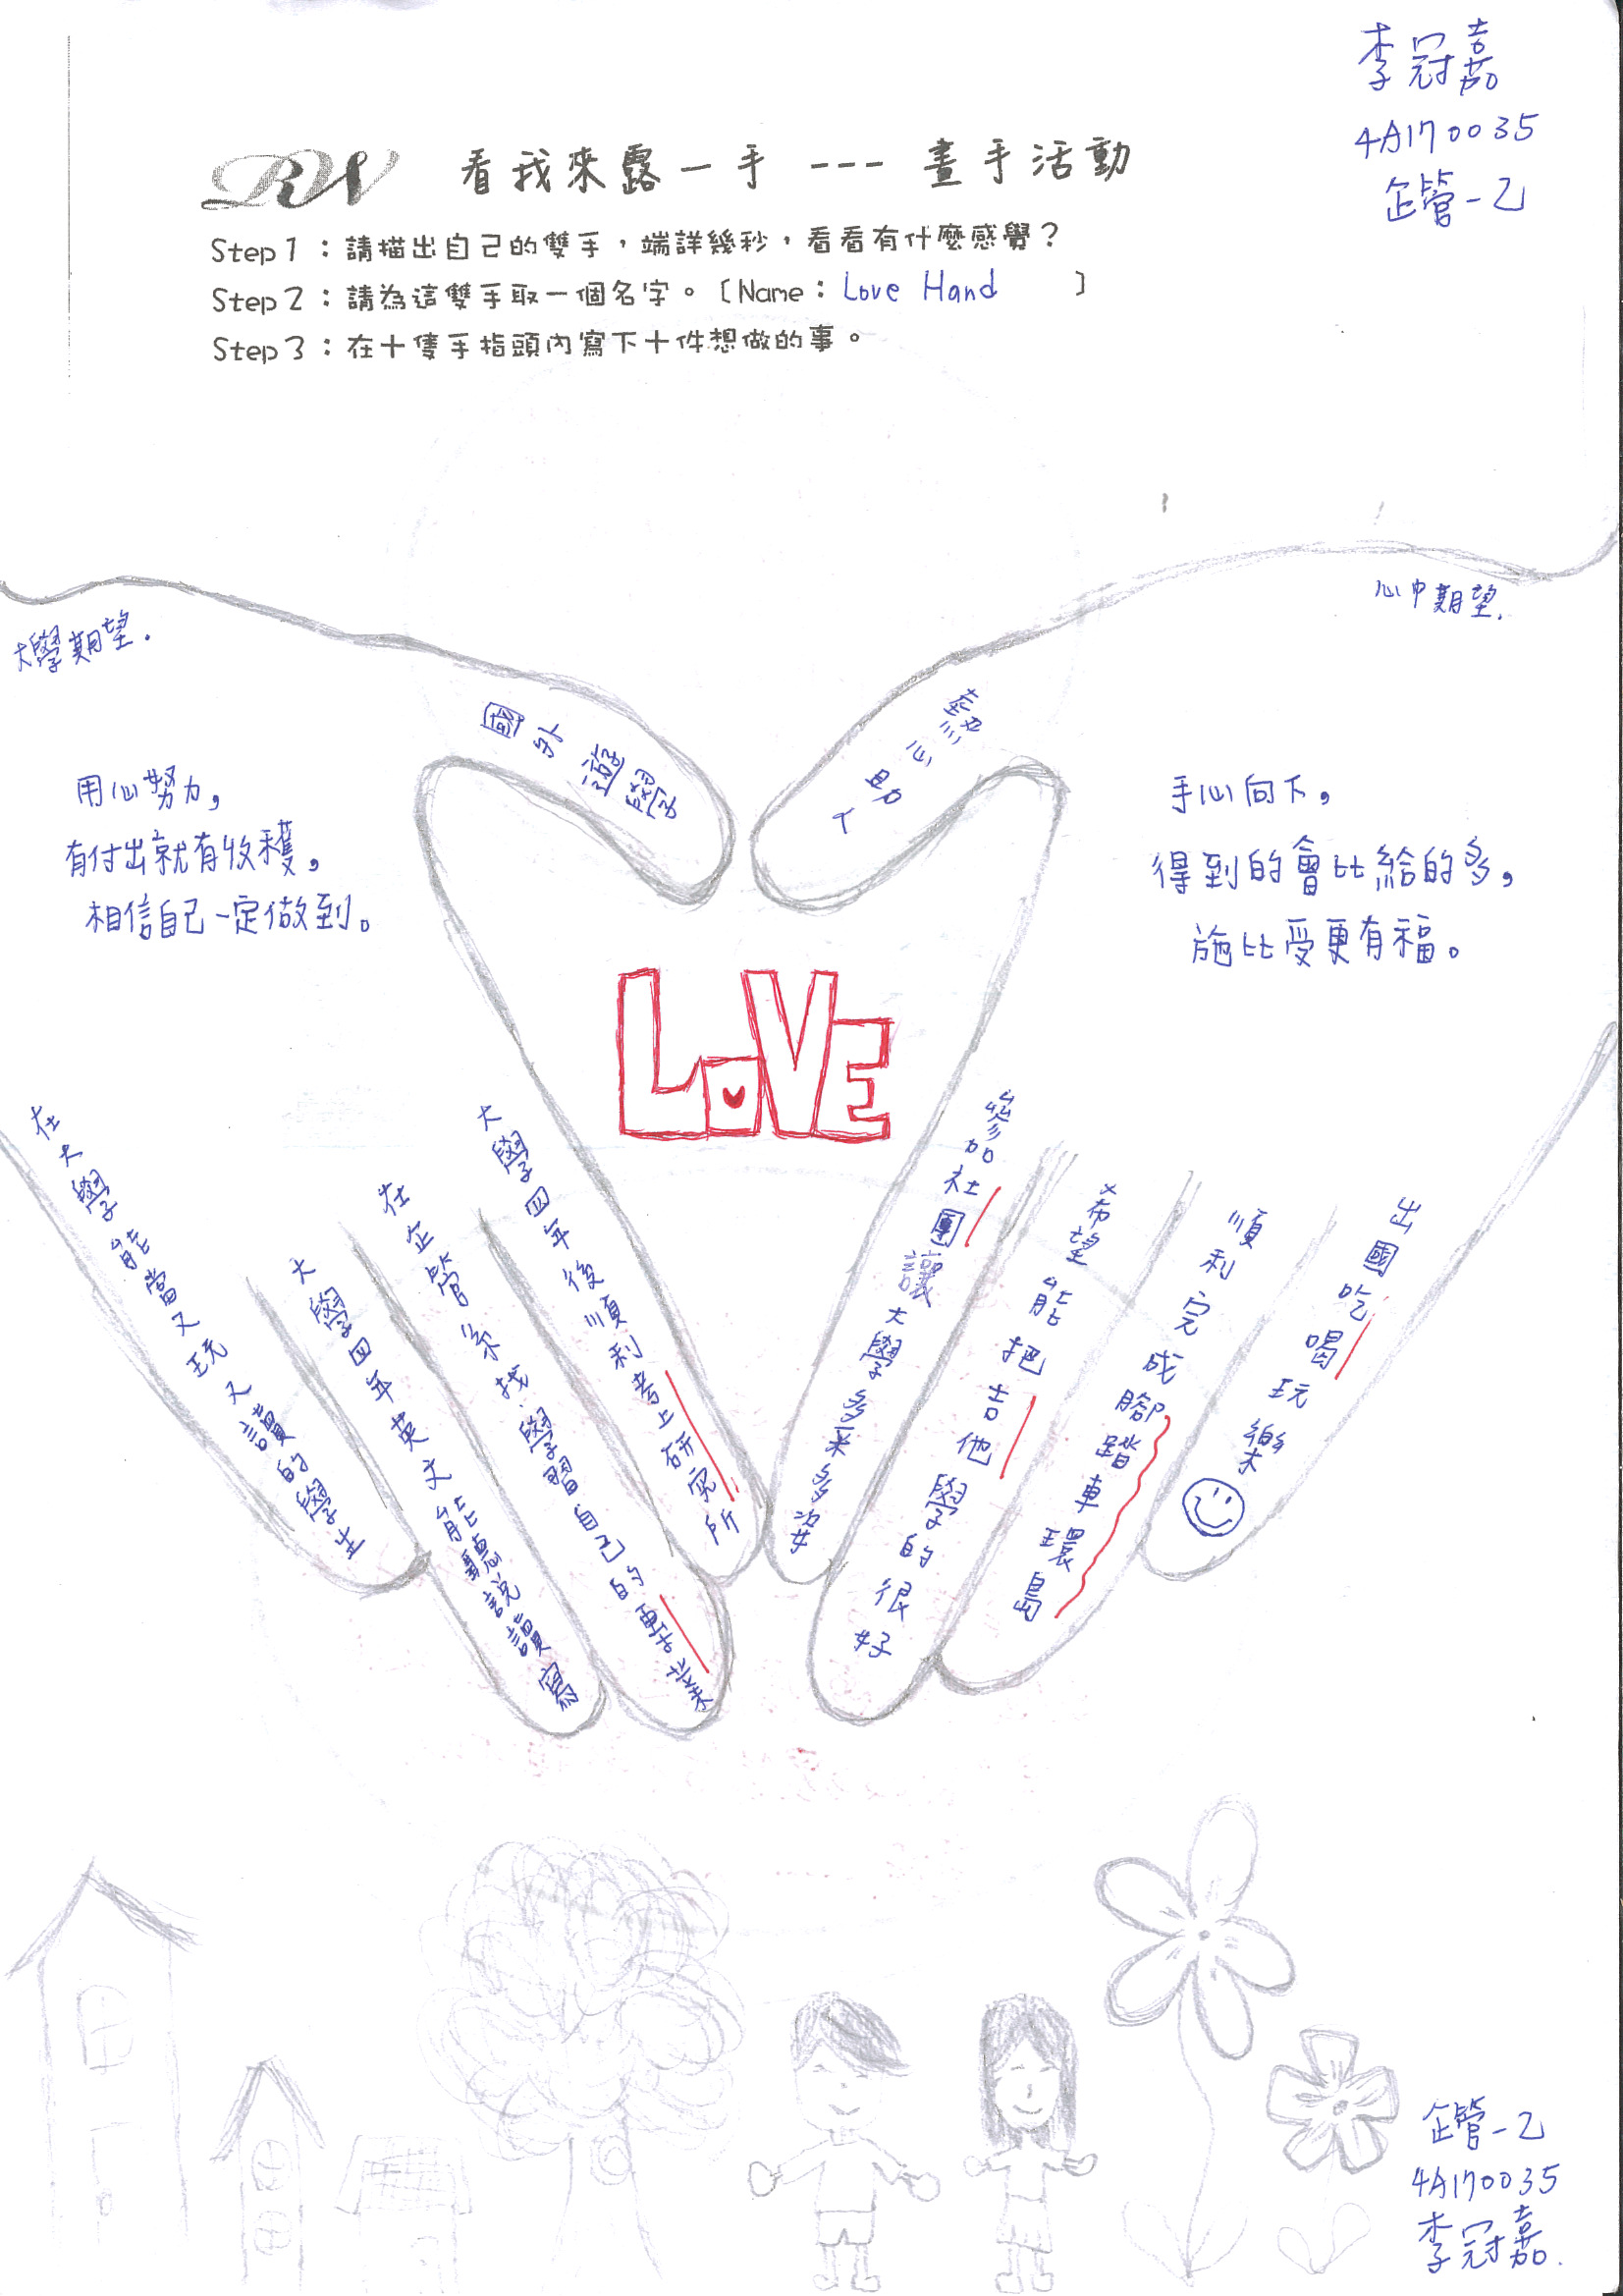 李冠嘉
4A170035
企管一乙
RW 看我來露一手 --- 畫手活動
Step1：請描出自己的雙手，端詳幾秒，看看有什麼感覺？
Step2：請為這雙手取一個名字。〔Name：Love Hand 〕
Step3：在十隻手指頭內寫下十件想做的事。
大學期望.
心中期望.
國外遊學
熱心助人
用心努力，
有付出就有收穫，
相信自己一定做到。
手心向下，
得到的會比給的多，
施比受更有福。
LOVE
在大學能當又玩又讀的學生
大學四年英文能聽說讀寫
在企管系找學習自己的專業
大學四年後順利考上研究所
參加社團讓大學多采多姿
希望能把吉他學的很好
順利完成腳踏車環島
出國吃喝玩樂
企管一乙
4A170035
李冠嘉.